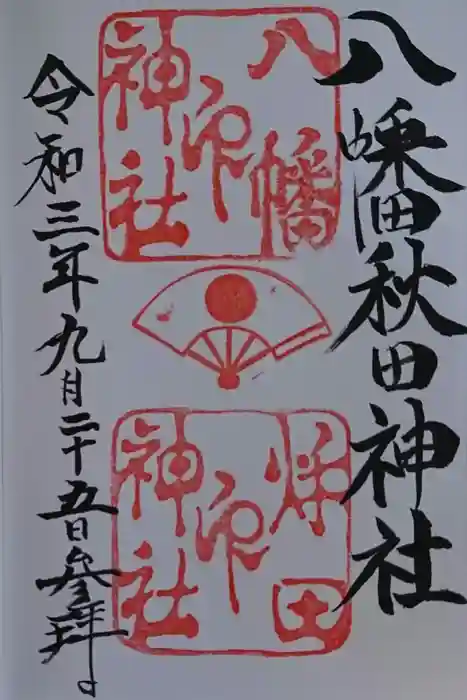 八幡秋田神社
八幡
神社
印
秋田
神社
印
令和三年九月二十五日参拝